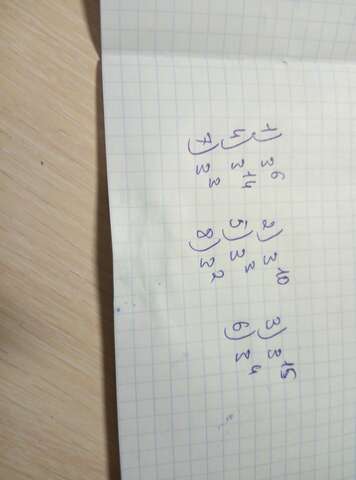 1) 3⁶ 2) 3¹⁰ 3) 3¹⁵
4) 3¹⁴ 5) 3⁷ 6) 3⁴
7) 3² 8) 3²